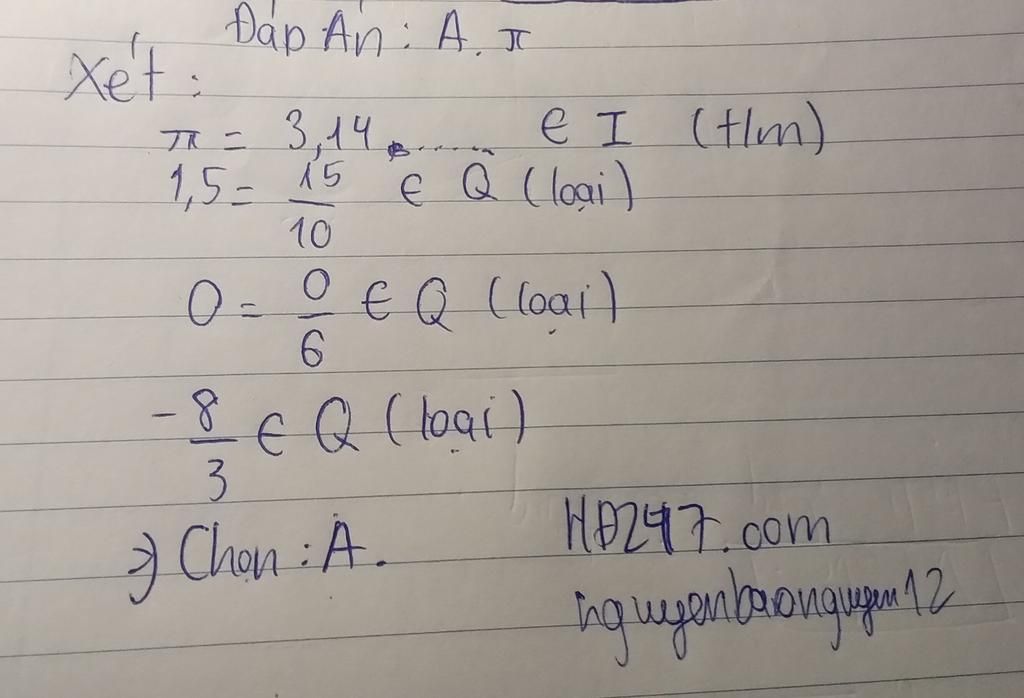 Đáp Án : A. π
Xét :
π = 3,14....... ∈ I (t/m)
1,5 = 15/10 ∈ Q (loại)
0 = 0/6 ∈ Q (loại)
-8/3 ∈ Q (loại)
⇒ Chọn : A.
HĐ247.com
nguyenbaonguyen12